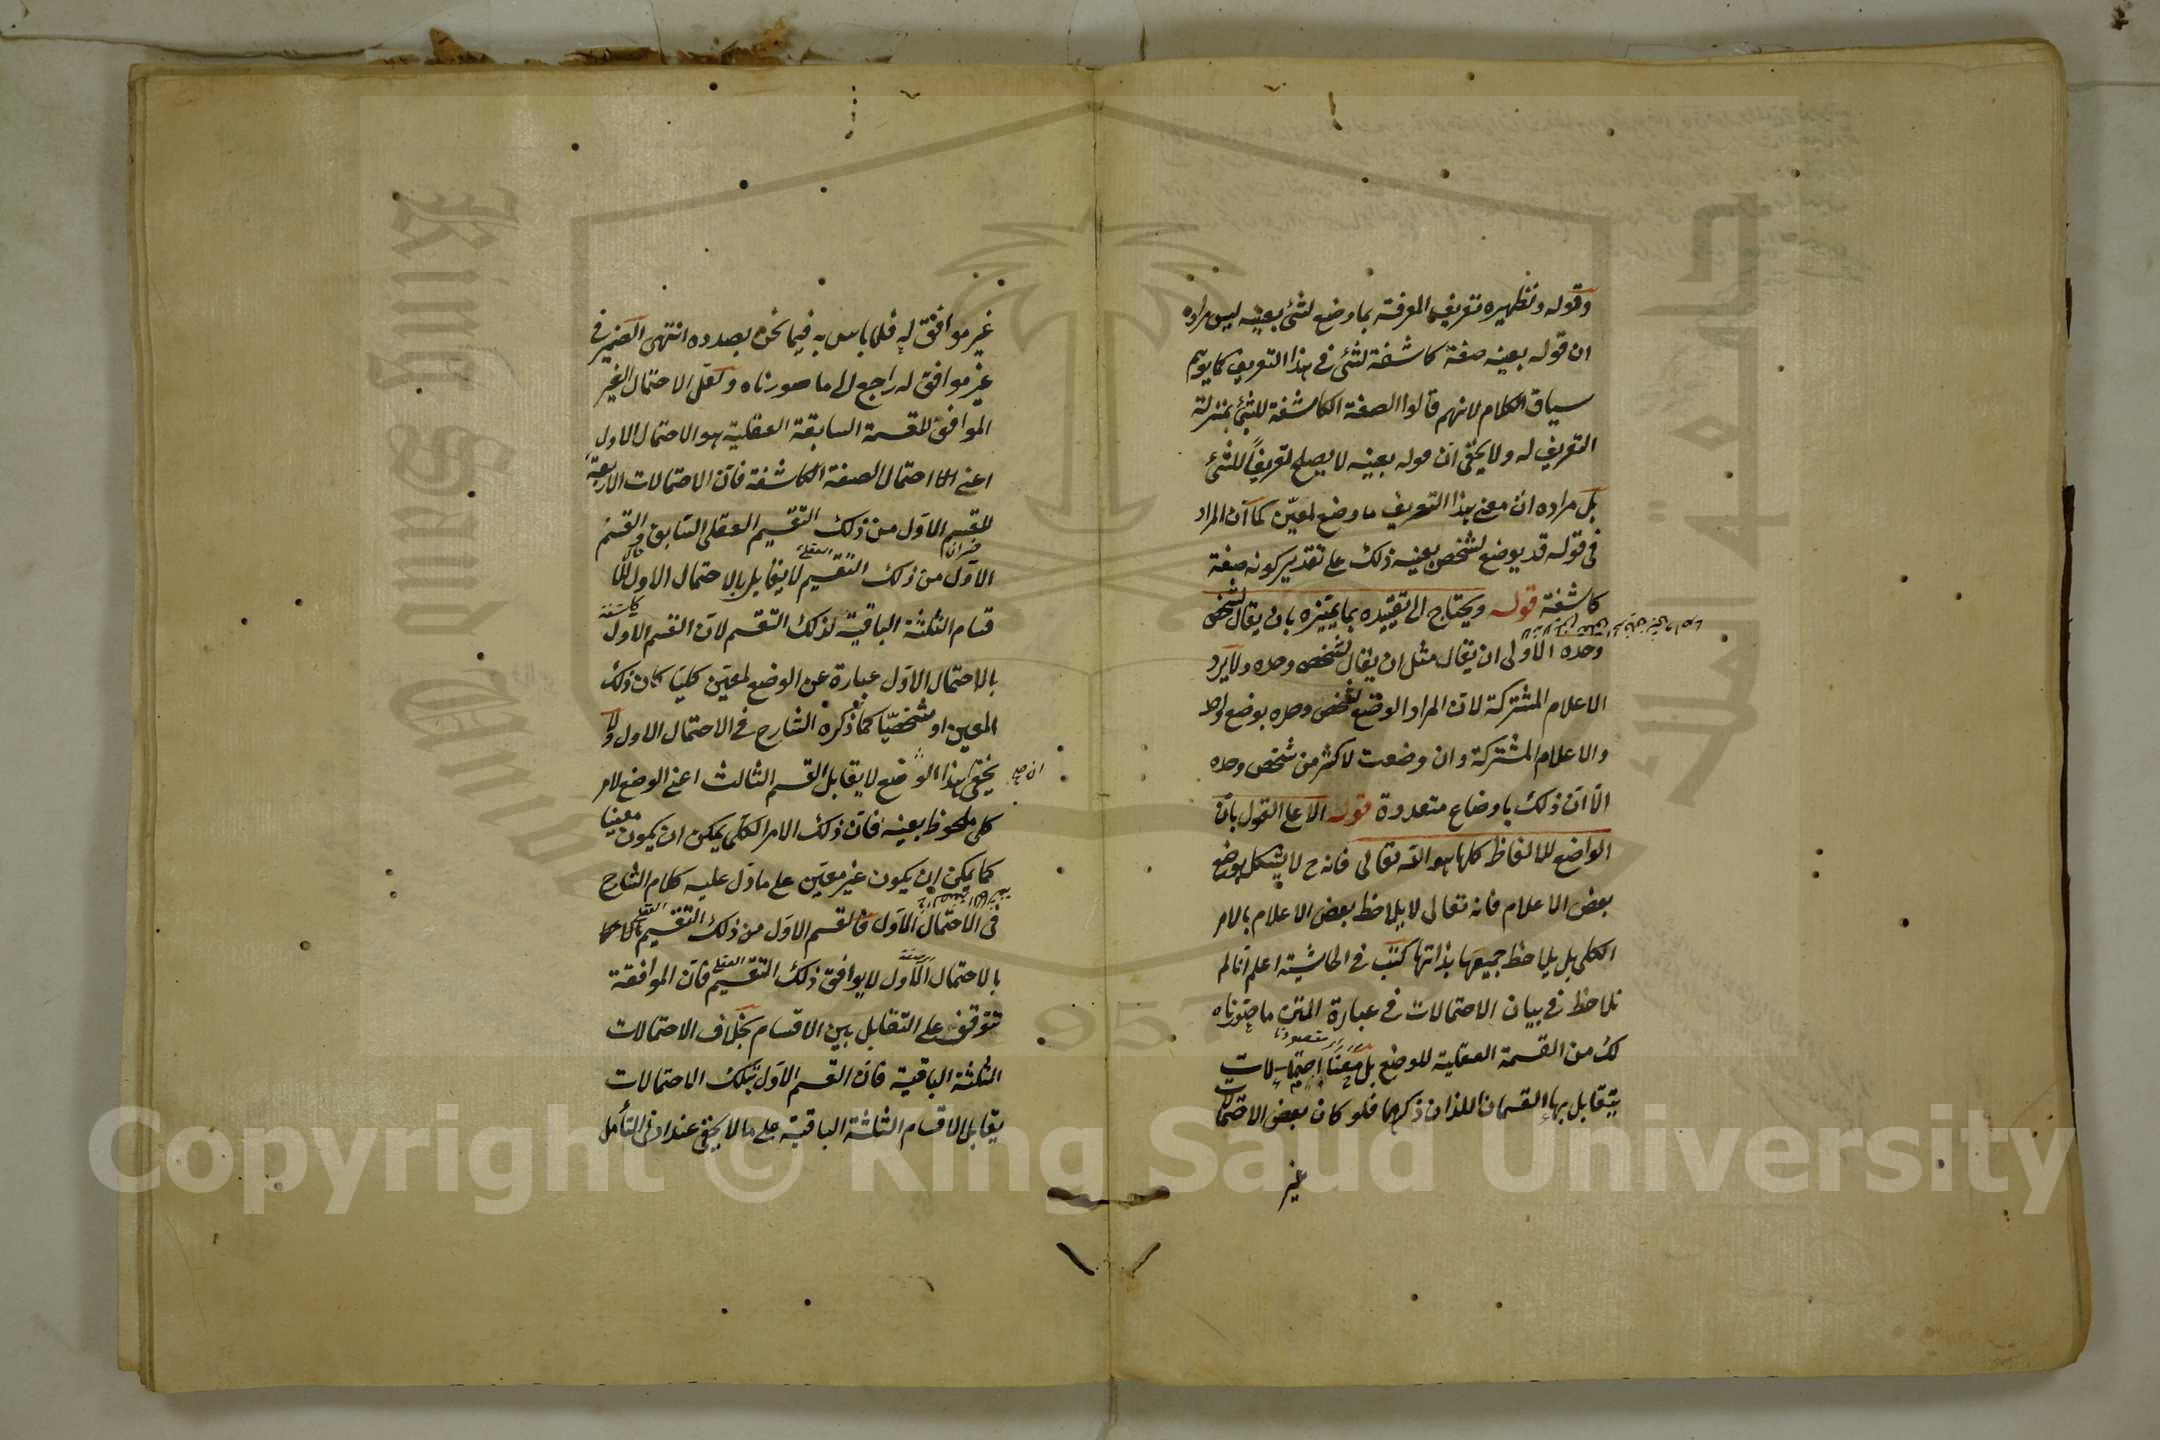 وقوله ونظيره تعريف المعرفة بما وضع لشئ بعينه ليس مراده
ان قوله بعينه صفة كاشفة لشئ في هذا التعريف كما يوهم
سياق الكلام لانهم قالوا الصفة الكاشفة للشئ بمنزلة
التعريف له ولا يخفى ان قوله بعينه لا يصلح تعريفاً للشئ
بل مراده ان معنى هذا التعريف ما وضع لمعيّن كما ان المراد
في قوله قد يوضع لشخص بعينه ذلك على تقدير كونه صفة
كاشفة قوله ويحتاج الى تقييده بما يميّزه بان يقال لشخص
وحده الاولى ان يقال مثل ان يقال لشخص وحده ولا يرد
الاعلام المشتركة لان المراد الوضع لشخص وحده بوضع واحد
والاعلام المشتركة وان وضعت لاكثر من شخص وحده
الّا ان ذلك باوضاع متعددة قوله الا على القول بانّ
الواضع للالفاظ كلها هو الله تعالى فانه ح لا يشكل بوضع
بعض الاعلام فانه تعالى لا يلاحظ بعض الاعلام بالامر
الكلي بل يلاحظ جميعها بذاتها كتب في الحاشية اعلم انا لم
نلاحظ في بيان الاحتمالات في عبارة المتن ما صوّرناه
لك من القسمة العقلية للوضع بل احتمالات
يتقابل بها القسمان اللذان ذكرهما فلو كان بعض الاحتمالات
غير
غير موافق له فلا باس به فيما نحن بصدده انتهى الضمير في
غير موافق له راجع الى ما صورناه ولعلّ الاحتمال الغير
الموافق للقسمة السابقة العقلية هو الاحتمال الاول
اعني احتمال الصفة الكاشفة فانّ الاحتمالات الاربعة
للقسم الاوّل من ذلك التقسيم العقلي السابق والقسم
الاوّل من ذلك التقسيم العقلي لا يقابل بالاحتمال الاول
قسام الثلثة الباقية لذلك التقسيم لان القسم الاول
بالاحتمال الاوّل عبارة عن الوضع لمعيّن كليا كان ذلك
المعين او شخصيّا كما ذكره الشارح في الاحتمال الاول ولا
يخفى ان هذا الوضع لا يقابل القسم الثالث اعني الوضع لامر
كلي ملحوظ بعينه فانّ ذلك الامر الكلّي يمكن ان يكون معينا
كما يمكن ان يكون غير معيّن على ما دل عليه كلام الشارح
في الاحتمال الاوّل فالقسم الاوّل من ذلك التقسيم العقلي
بالاحتمال الاول لا يوافق ذلك التقسيم العقلي فان الموافقة
تتوقف على التقابل بين الاقسام بخلاف الاحتمالات
الثلثة الباقية فان القسم الاوّل بتلك الاحتمالات
يقابل الاقسام الثلثة الباقية على ما لا يخفى عند ادنى التأمل
King Saud University
جامعة الملك
1957
Copyright © King Saud University